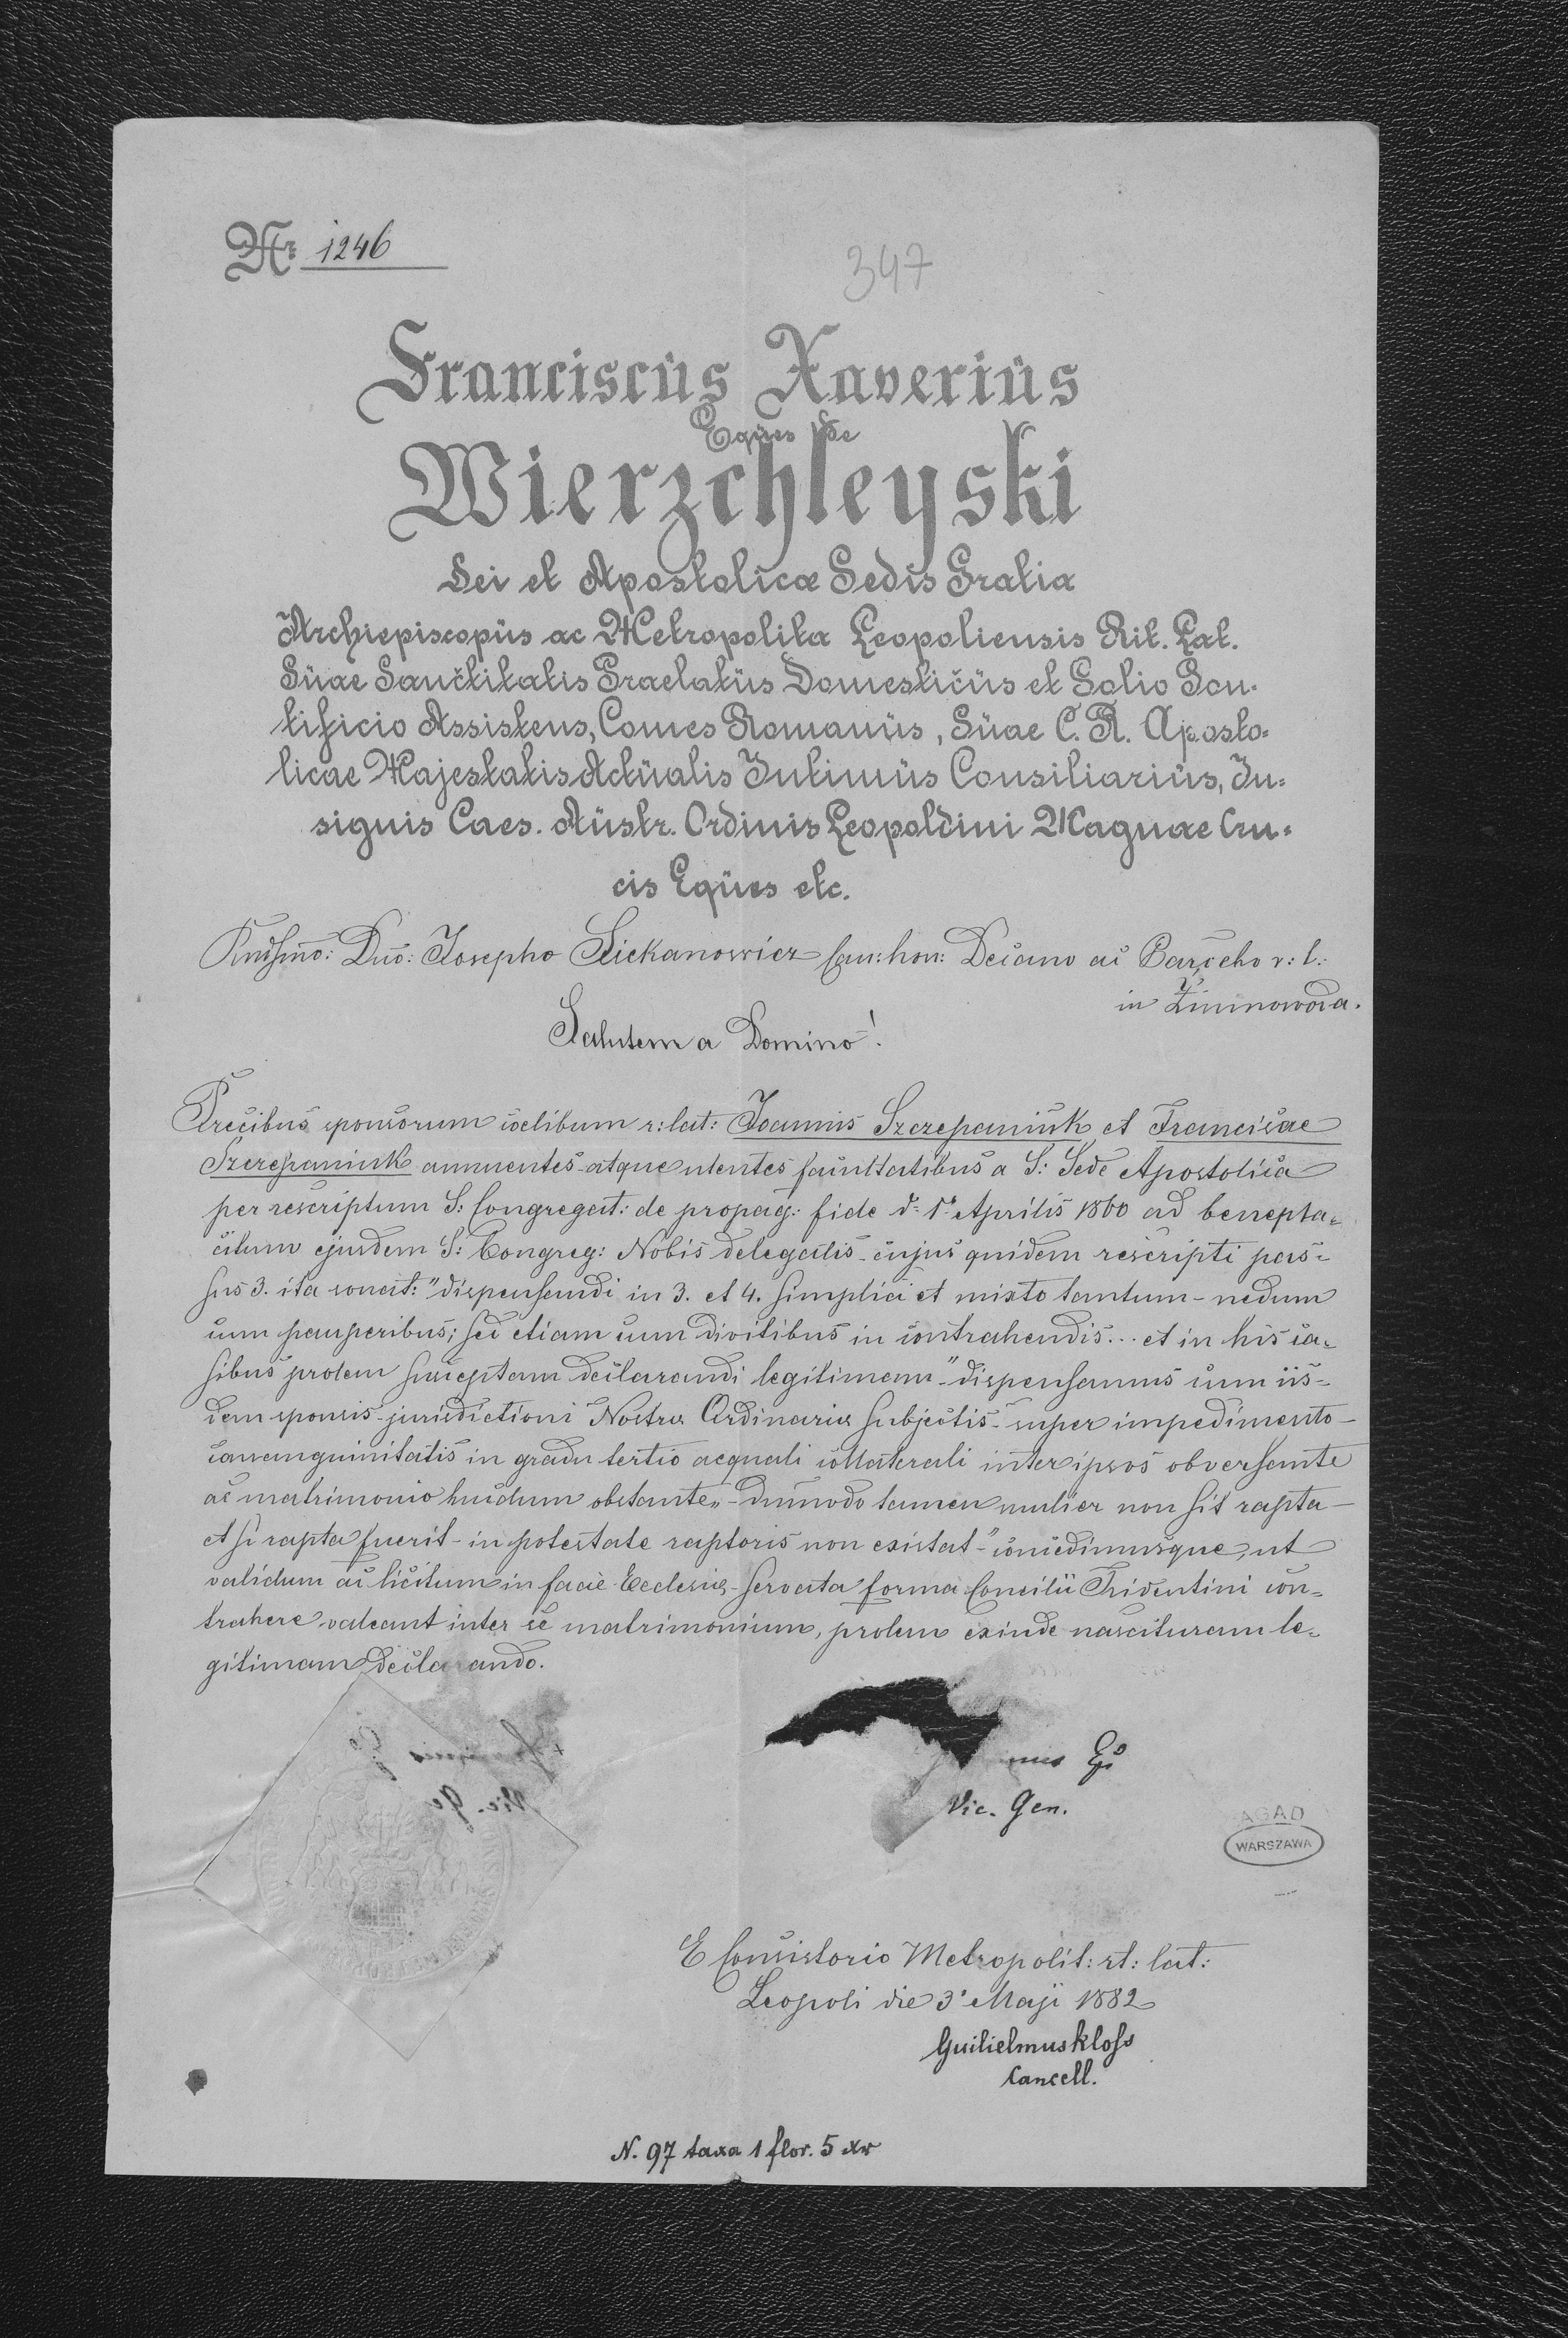 Nr. 1246
347
Franciscus Xaverius
Eques de
Wierzchleyski
Dei et Apostolicæ Sedis Gratia
Archiepiscopus ac Metropolita Leopoliensis Rit. Lat.
Suae Sanctitatis Praelatus Domesticus et Solio Pon-
tificio Assistens, Comes Romanus, Suae C. R. Aposto-
licae Majestatis Actualis Intimus Consiliarius, In-
signis Caes. Austr. Ordinis Leopoldini Magnae Cru-
cis Eques etc.
Rndsmo: Dno: Josepho Siekanowicz Can: hon: Decano ac Parocho r: l:
in Zimnowoda.
Salutem a Domino!
Precibus sponsorum coelibum r: lat: Joannis Szczepaniuk et Franciscae
Szczepaniuk annuentes atque utentes facultatibus a S: Sede Apostolica
per rescriptum S: Congregat: de propag: fide d: 1° Aprilis 1860 ad benepla-
citum ejusdem S: Congreg: Nobis delegatis - cujus quidem rescripti pas-
sus 3. ita sonat: "dispensandi in 3. et 4. simplici et mixto tantum - nedum
cum pauperibus; sed etiam cum divitibus in contrahendis... et in his ca-
sibus prolem susceptam declarandi legitimam" - dispensamus cum iis-
dem sponsis - jurisdictioni Nostræ Ordinariæ subjectis - super impedimento
consanguinitatis in gradu tertio aequali collaterali inter ipsos obversante
ac matrimonio hucdum obstante „ - dummodo tamen mulier non sit rapta -
et si rapta fuerit - in potestate raptoris non existat" - concedimusque, ut
validum ac licitum in facie Ecclesiæ - servata forma Concilii Tridentini con-
trahere valeant inter se matrimonium, prolem exinde nascituram le-
gitimam declarando.
Vic. Gen.
AGAD
WARSZAWA
E Consistorio Metropolit: rt: lat:
Leopoli die 3° Maji 1882
Guilielmus Kloss
Cancell.
N. 97 taxa 1 flor. 5 xr